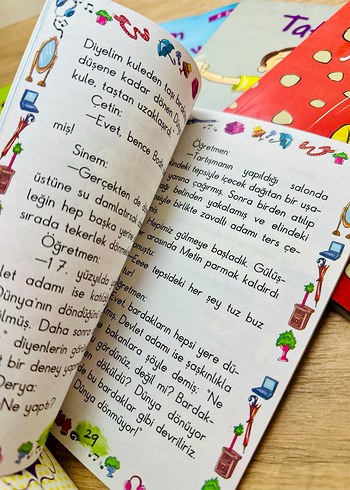 Diyelim kuleden taş
düşene kadar döner
kule, taştan uzaklaşır
Çetin:
—Evet, bence de
miş!
Sinem:
—Gerçekten de
üstüne su damlatırsak
leğin hep başka yeri
sırada tekerlek döner
Öğretmen:
—17. yüzyılda
vlet adamı ise
Dünya'nın döndüğün
ülmüş. Daha sonra
" diyenlerin
t bir deney
Derya:
—Ne yaptı?
Öğretmen:
—Tartışmanın yapıldığı salonda
indeki tepsiyle içecek dağıtan bir uşa-
yanına çağırmış. Sonra birden atılıp
ağı belinden yakalamış ve elindeki
psiyle birlikte zavallı adamı ters çe-
Hepimiz gülmeye başladık. Gülüş-
arasında Metin parmak kaldırdı
onuştu:
—Eeee tepsideki her şey tuz buz
ur!
Öğretmen:
Evet, bardakların hepsi yere dü-
. Devlet adamı ise şaşkınlıkla
bakanlara şöyle demiş: "Ne
gördünüz, değil mi? Bardak-
döküldü? Dünya dönüyor
de bu bardaklar gibi devriliriz.
Dünya dönmüyor!"
29